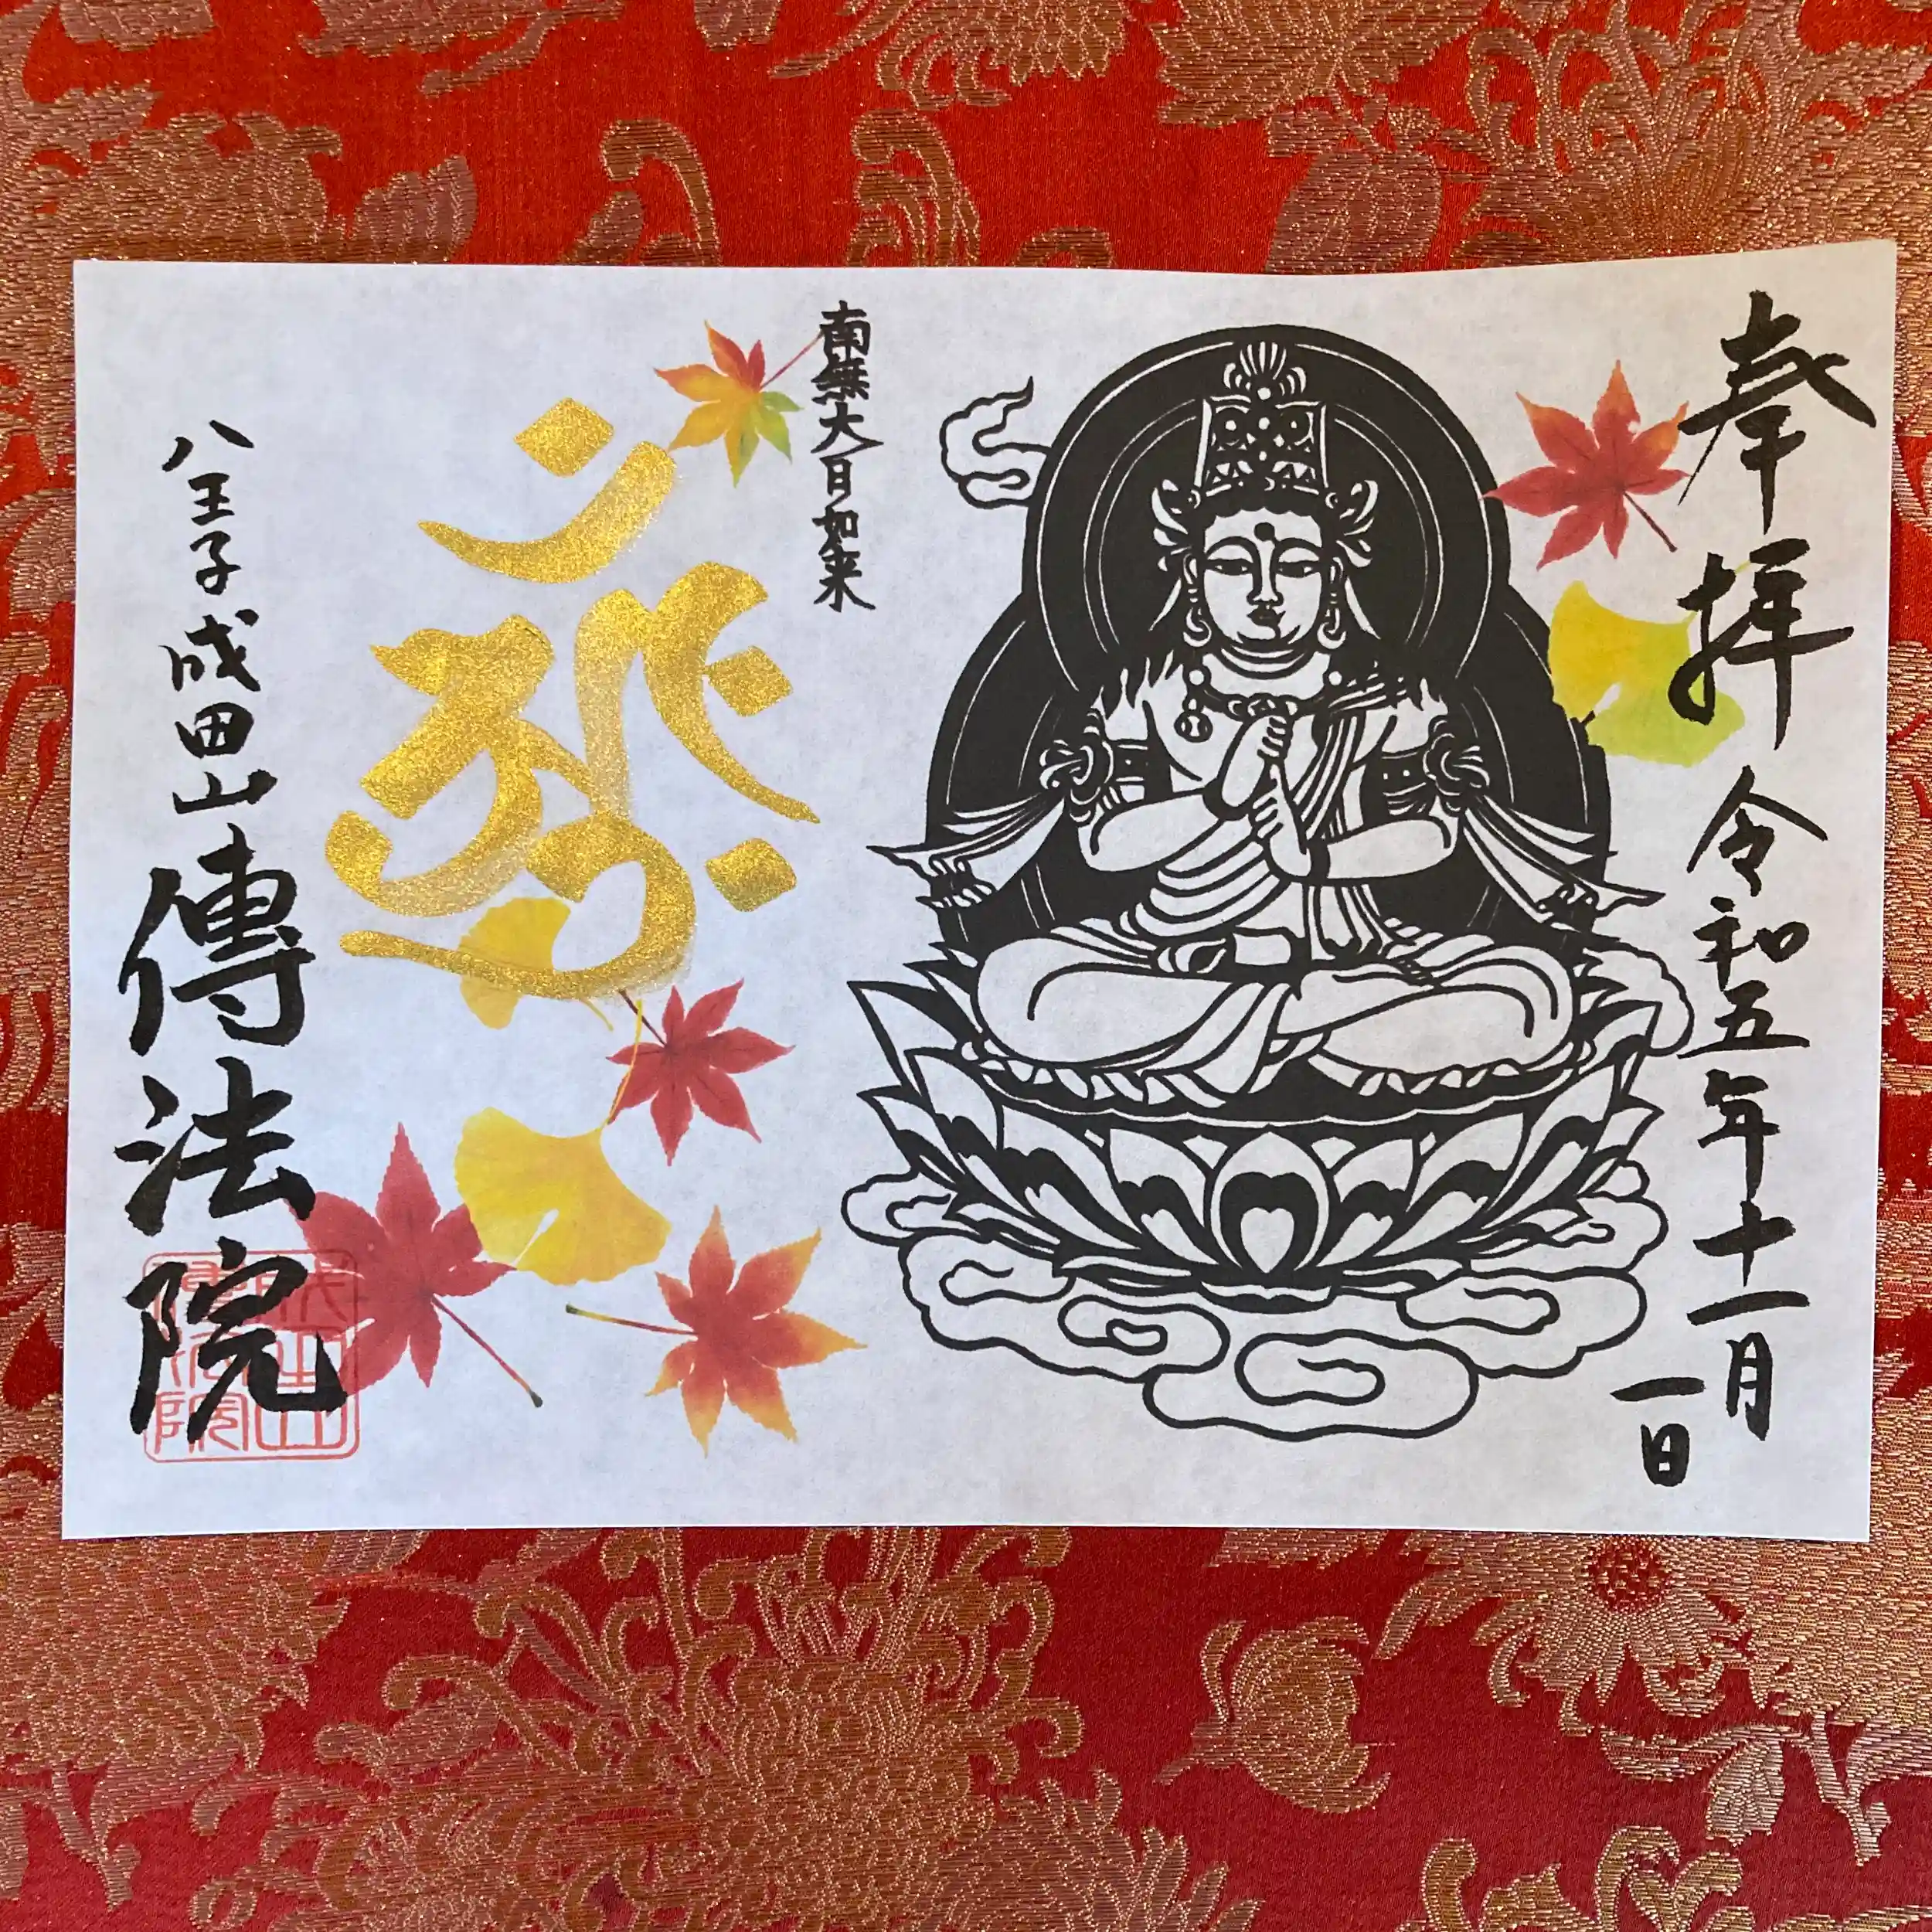 奉拝
令和五年十一月
一日
南無大日如来
八王子成田山傳法院